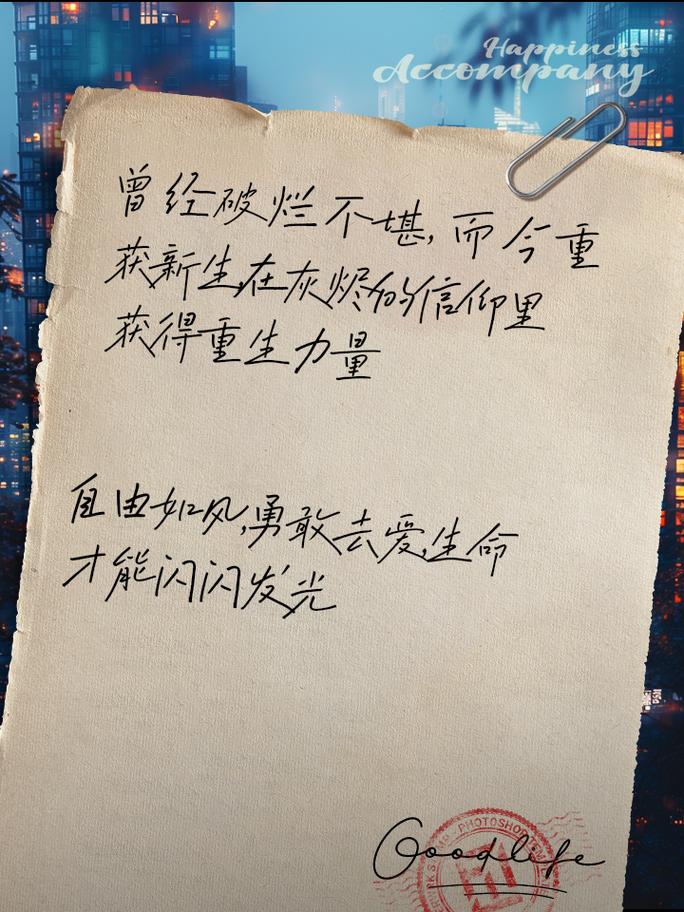 Happiness
Accompany
曾经破烂不堪,而今重
获新生在灰烬的信仰里
获得重生力量
自由如风,勇敢去爱,生命
才能闪闪发光
PHOTOSHOP
Goodlife